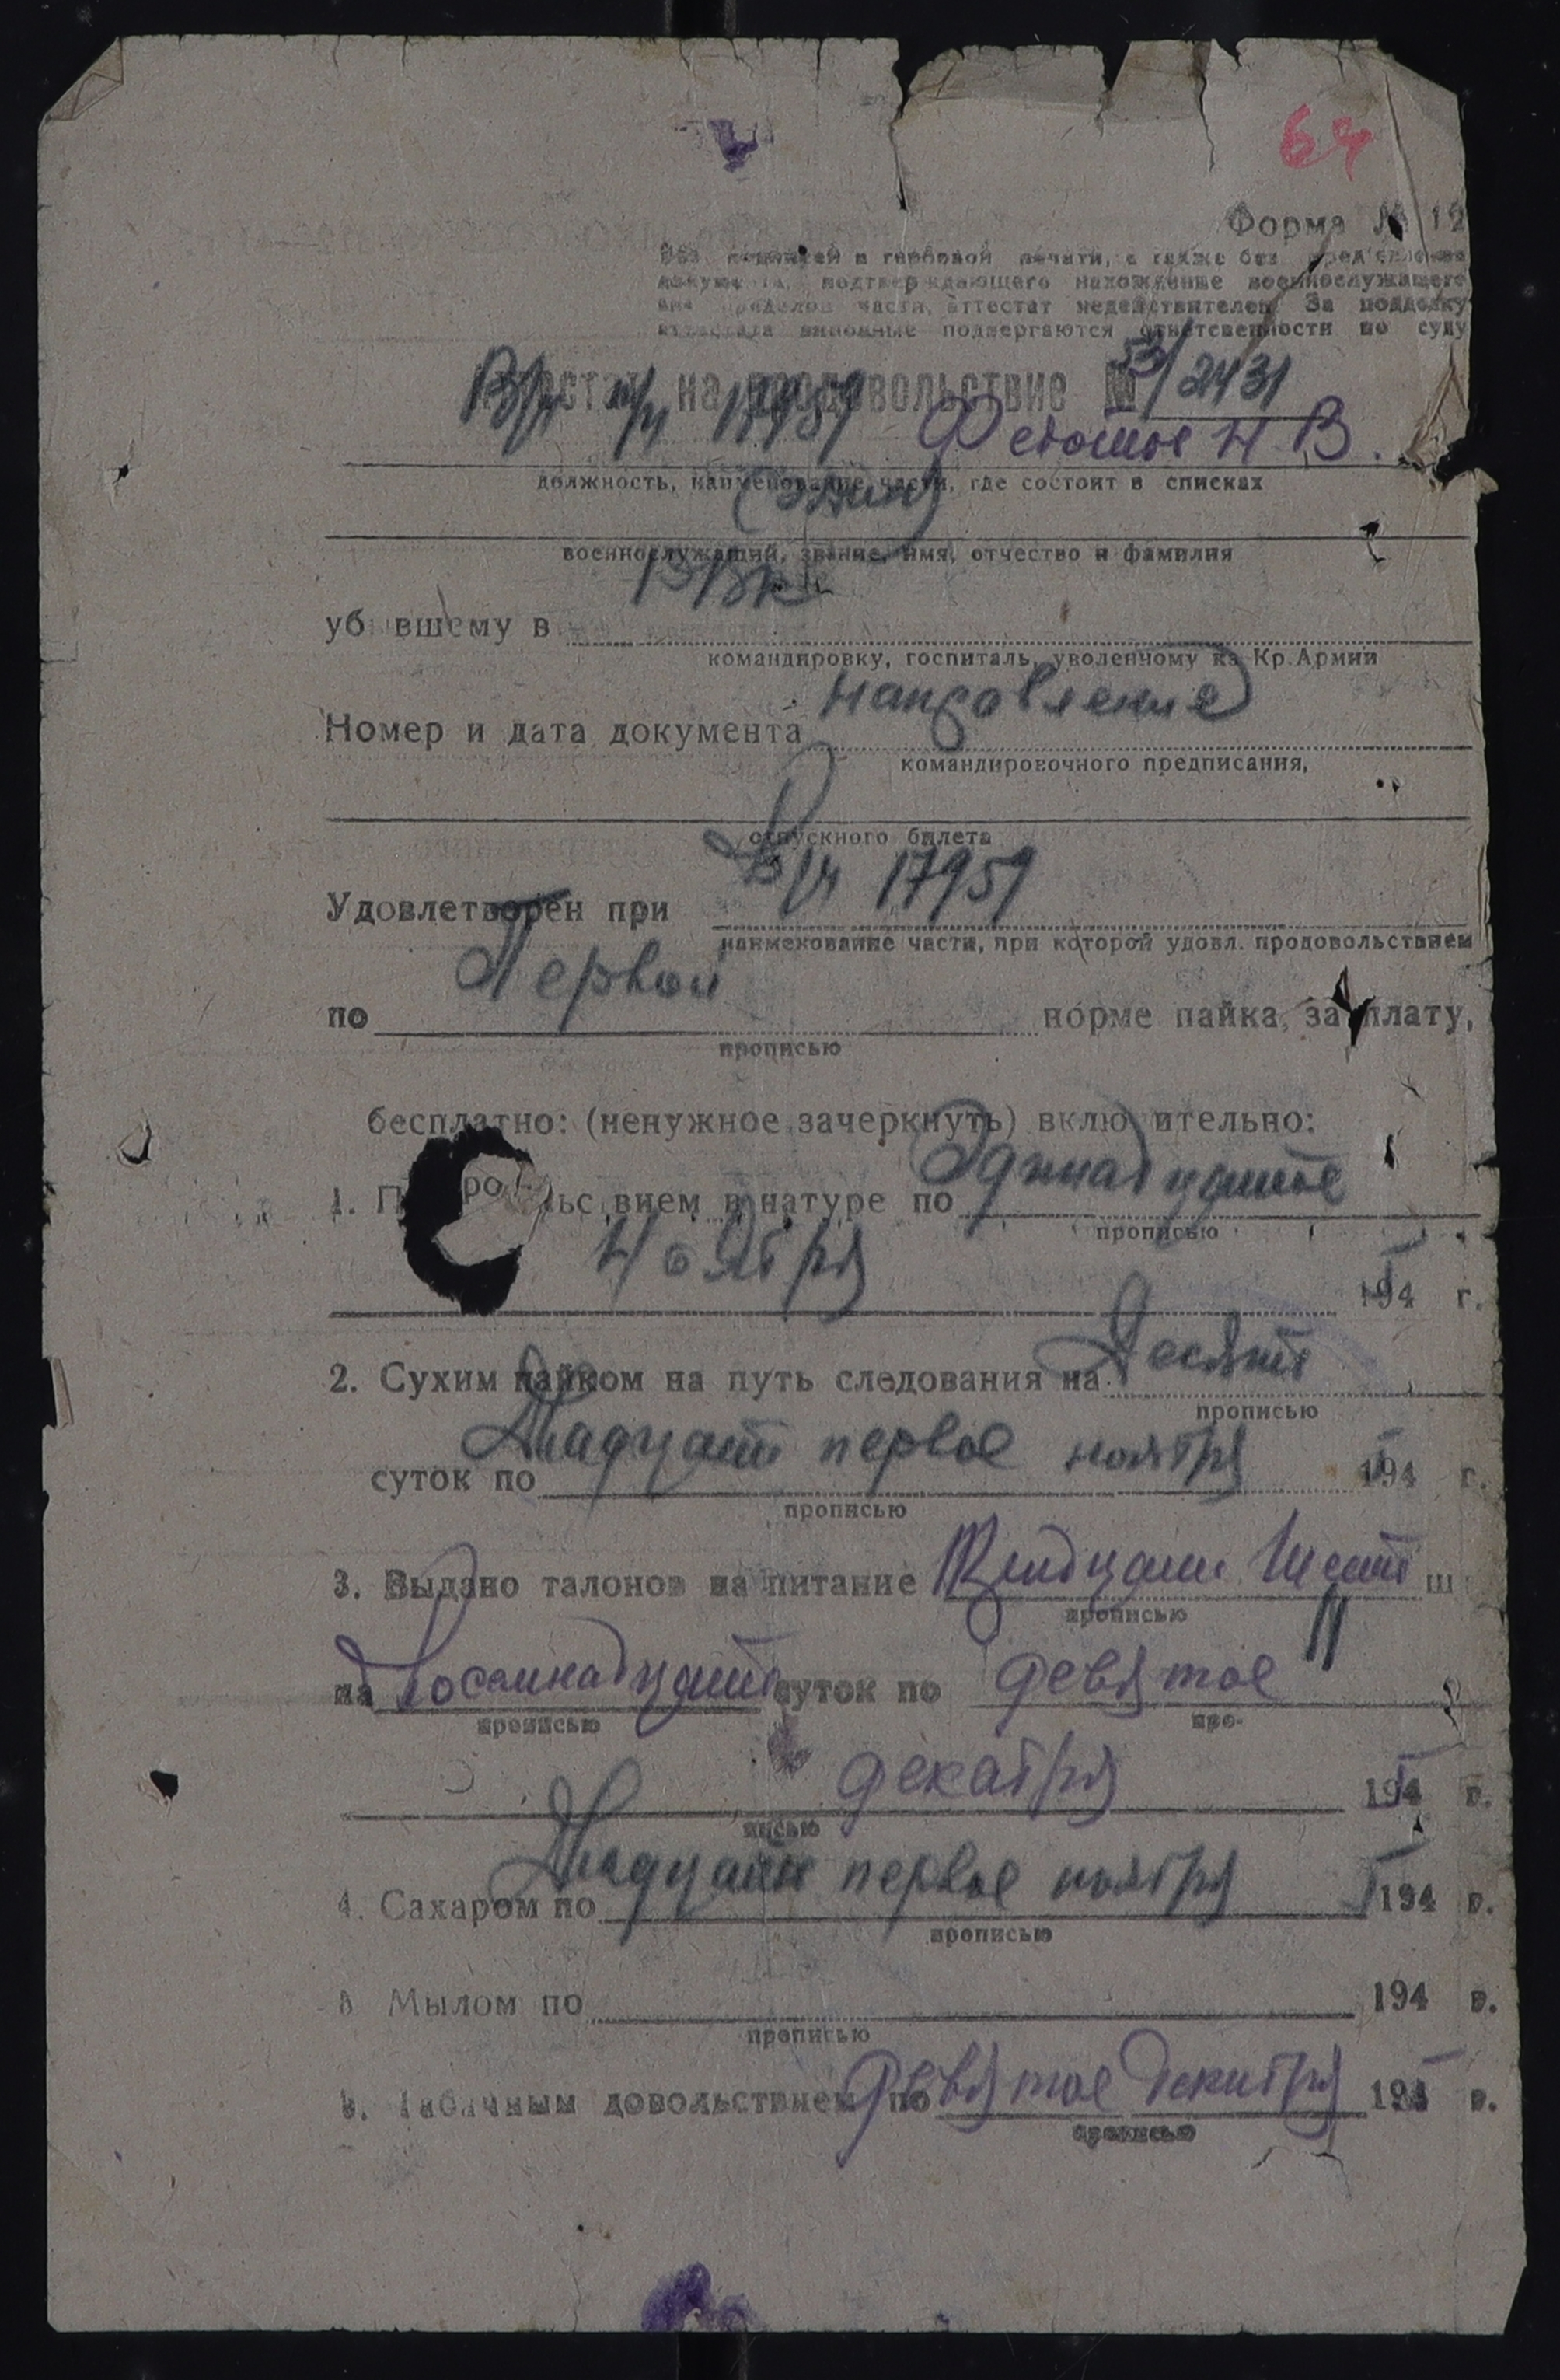 64
Форма № 12
Без подписей и гербовой печати, а также без предъявления
документа, подтверждающего нахождение военнослужащего
вне пределов части, аттестат недействителен. За подделку
аттестата виновные подвергаются ответсвенности по суду
Аттестат на продовольствие № 53/2431
В/ч п/п 17959 Н. В.
должность, наименование части, где состоит в списках
(один)
военнослужащий, звание, имя, отчество и фамилия
уб вшему в РВК
командировку, госпиталь, уволенному из Кр. Армии
Номер и дата документа направление
командировочного предписания,
отпускного билета
Удовлетворен при В/ч 17959
наименование части, при которой удовл. продовольствием
по Первой норме пайка, за плату,
прописью
бесплатно: (ненужное зачеркнуть) вклю ительно:
1. П ро льс вием в натуре по Одинадцатое
прописью
Ноября 1945 г.
2. Сухим пайком на путь следования на Десять
прописью
суток по Двадцать первое ноября 1945 г.
прописью
3. Выдано талонов на питание Тридцать Шесть ш
прописью
на Восемнадцать суток по девятое
прописью про-
декабря 1945 г.
писью
4. Сахаром по Двадцать первое ноября 5 194 г.
прописью
5 Мылом по 194 г.
прописью
6. Табачным довольствием по девятое декабря 1945 г.
прописью